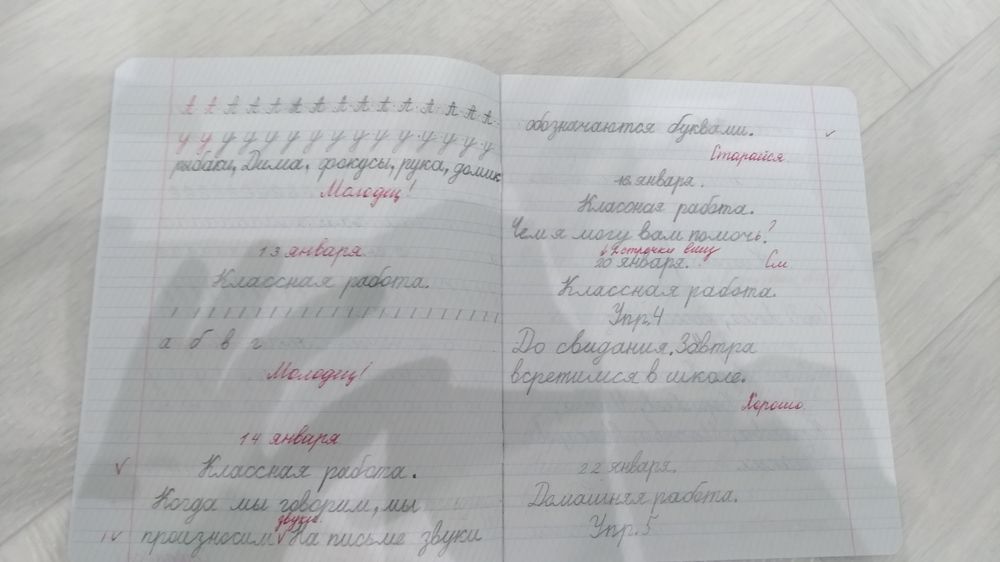 А А А А А А А А А А А А А А
у у у у у у у у у у у у у у
рыбаки, Дима, фокусы, рука, домик
Молодец!
13 января
Классная работа.
а б в г
Молодец!
14 января
Классная работа.
Когда мы говорим, мы
звуки.
произносим На письме звуки
обозначаются буквами.
Старайся
16 января.
Классная работа.
Чем я могу вам помочь?
↓ 2 строчки вниз
20 января. См
Классная работа.
Упр.4
До свидания. Завтра
встретимся в школе.
Хорошо
22 января.
Домашняя работа.
Упр.5